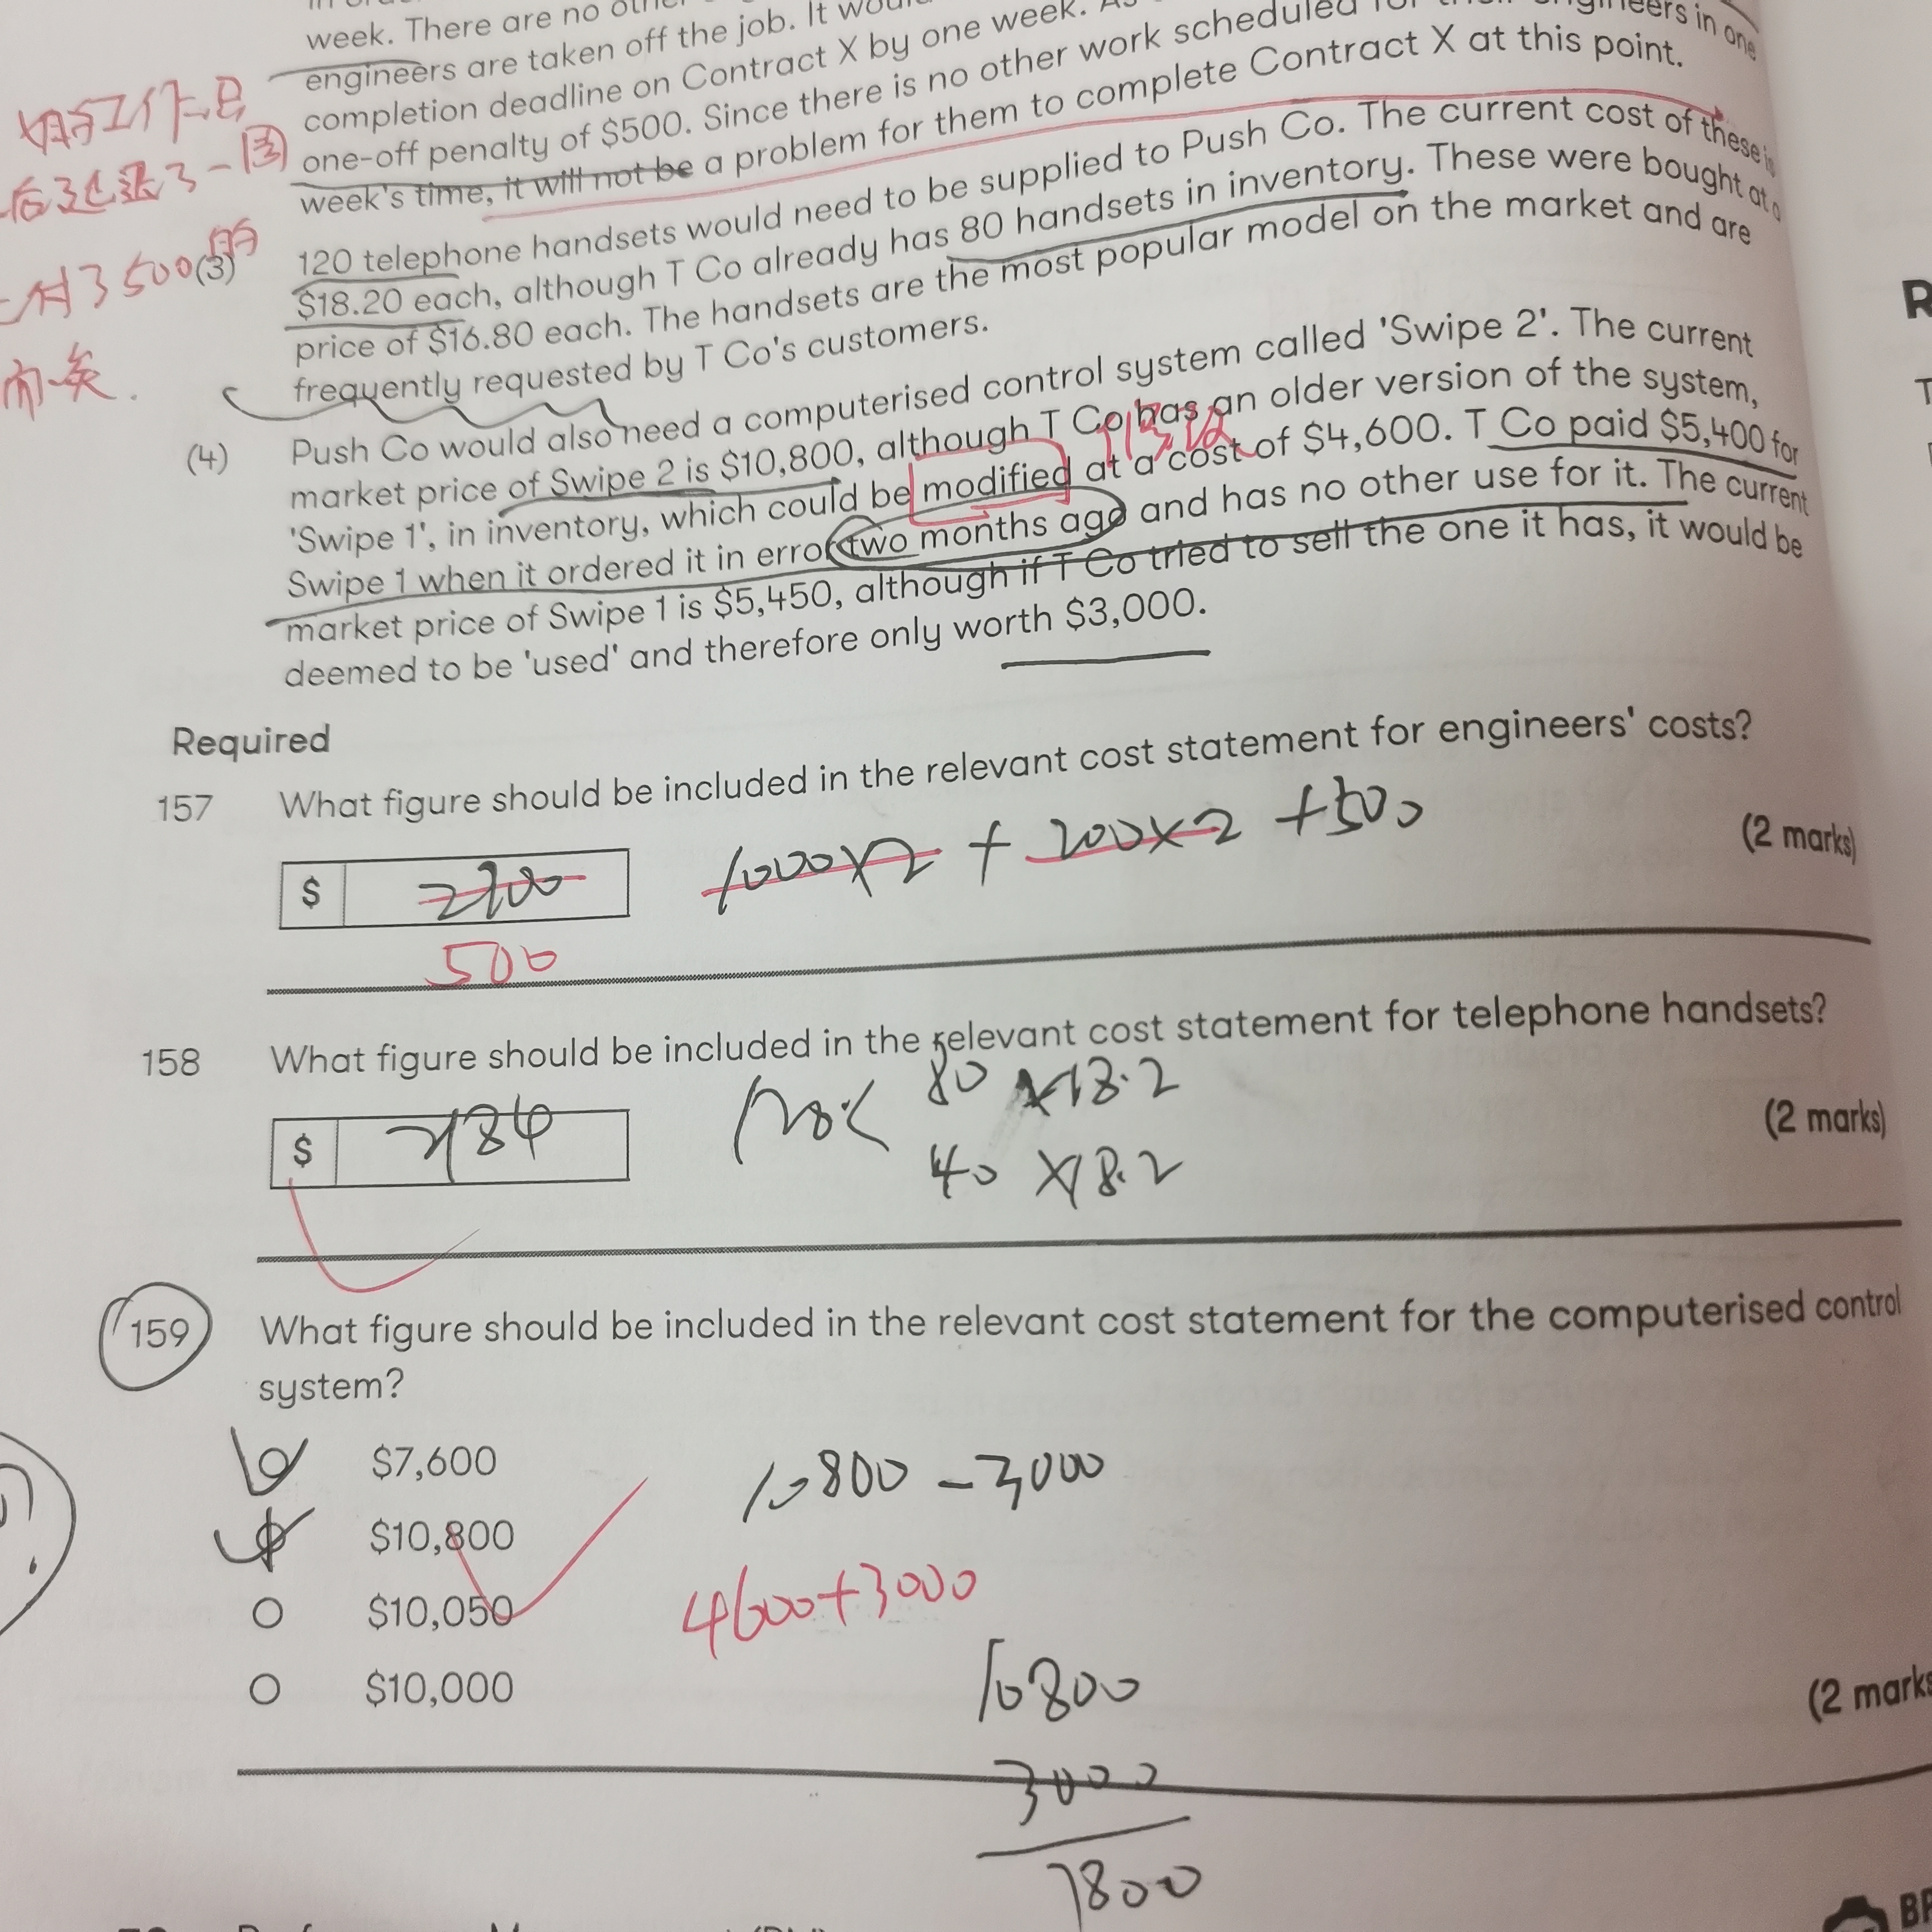 week. There are no
engineers are taken off the job. It
completion deadline on Contract X by one week.
one-off penalty of $500. Since there is no other work scheduled
week's time, it will not be a problem for them to complete Contract X at this point.
engineers in one
后
500
(3)
120 telephone handsets would need to be supplied to Push Co. The current cost of these is
$18.20 each, although T Co already has 80 handsets in inventory. These were bought at a
price of $16.80 each. The handsets are the most popular model on the market and are
frequently requested by T Co's customers.
(4)
Push Co would also need a computerised control system called 'Swipe 2'. The current
market price of Swipe 2 is $10,800, although T Co has an older version of the system,
'Swipe 1', in inventory, which could be modified at a cost of $4,600. T Co paid $5,400 for
Swipe 1 when it ordered it in error two months ago and has no other use for it. The current
market price of Swipe 1 is $5,450, although if T Co tried to sell the one it has, it would be
deemed to be 'used' and therefore only worth $3,000.
Required
157 What figure should be included in the relevant cost statement for engineers' costs?
1000×2 + 200×2 +500
(2 marks)
$ 2900
500
158 What figure should be included in the relevant cost statement for telephone handsets?
80 ×18.2
$ 2184
40 ×18.2
(2 marks)
159 What figure should be included in the relevant cost statement for the computerised control
system?
$7,600
10800 - 3000
$10,800
$10,050
4600+3000
$10,000
10800
(2 marks
3000
7800